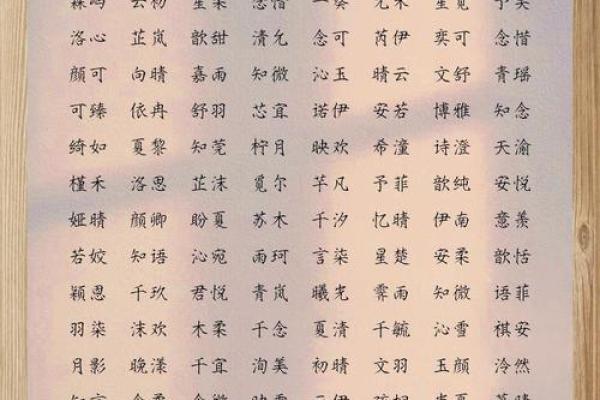 洛心 芷岚 歆甜 清允 念可 芮伊 奕可 念惜
颜可 向晴 嘉雨 知微 沁玉 晴云 文舒 青瑶
可臻 依冉 舒羽 芯宜 诺伊 安若 博雅 知念
绮如 夏黎 知莞 柠月 映欢 希潼 诗澄 天渝
槿禾 洛思 芷沫 觅尔 芊凡 予菲 歆纯 安悦
娅晴 颜卿 盼夏 苏木 千汐 忆晴 伊南 意羡
若姣 知语 沁宛 雨珂 言柒 星楚 安柔 歆恬
颖思 千玖 君悦 青岚 曦光 霁雨 知微 语菲
羽柒 沫欢 木柔 千念 夏清 千毓 沁雪 祺安
月影 晚漾 千宜 洵美 初晴 文羽 玉颜 泠然